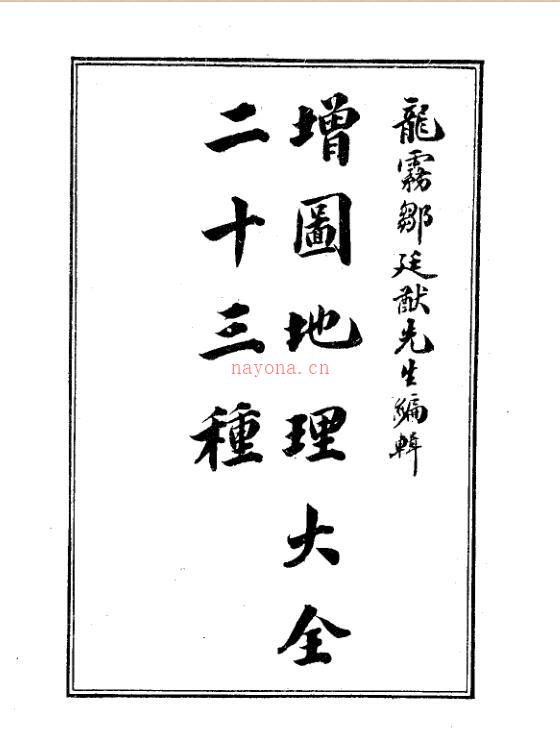 龍霧鄒廷猷先生編輯
增圖地理大全
二十三種
nayona.cn